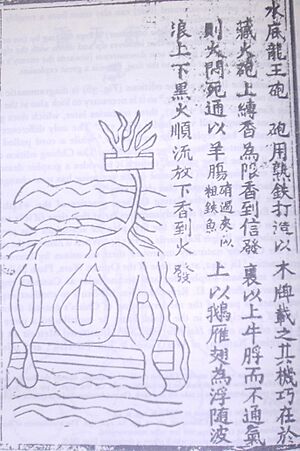 水底龍王砲　砲用熟鉄打造以木牌載之其機巧在於
藏火砲上縛香為限香到信發裏以上牛脬而不通氣
則火悶死通以羊腸硝過夾以粗鉄魚上以鵝雁翅為浮隨波
浪上下黑火順流放下香到火發